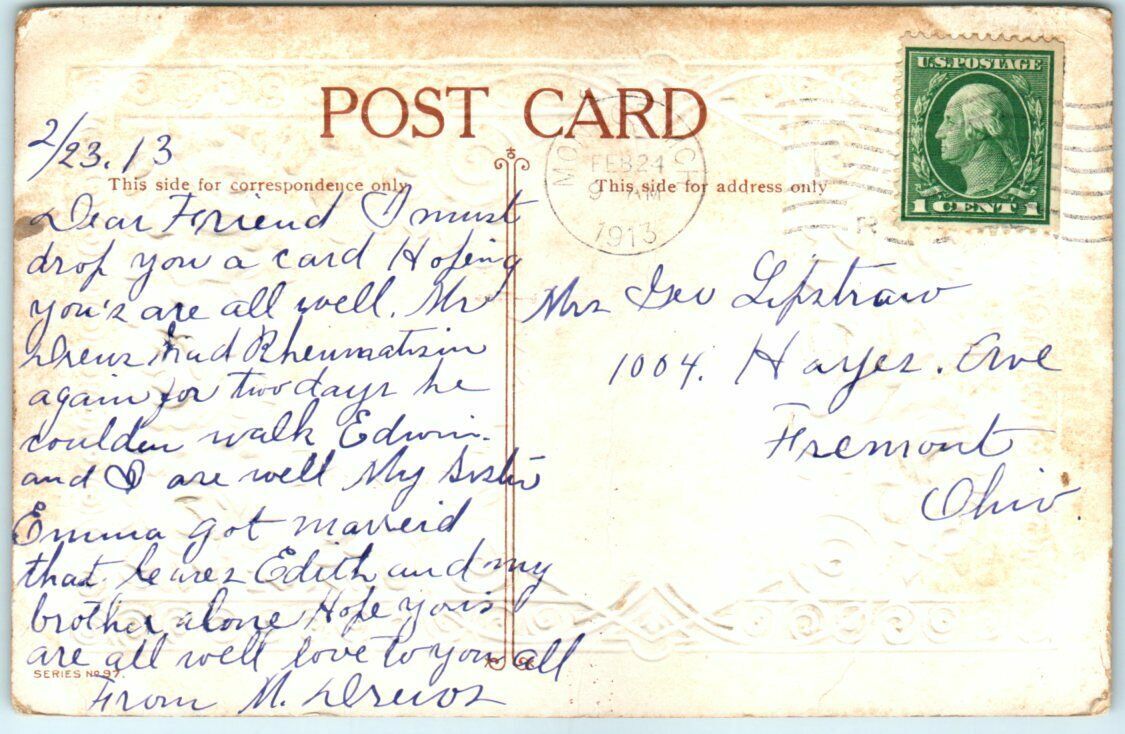 POST CARD
U.S. POSTAGE
1 CENT 1
FEB 24
AM
1913
2/23.13
This side for correspondence only
This side for address only
Dear Friend I must
drop you a card Hoping
you's are all well. Mr
Drews had Rheumatism
again for two days he
coulden walk Edwin.
and I are well My Sister
Emma got marreid
that leaves Edith and my
brother alone Hope yous
are all well love to you all
From M. Drews
SERIES No 97.
Mrs Geo Lipstraw
1004. Hayes. Ave
Fremont
Ohio.